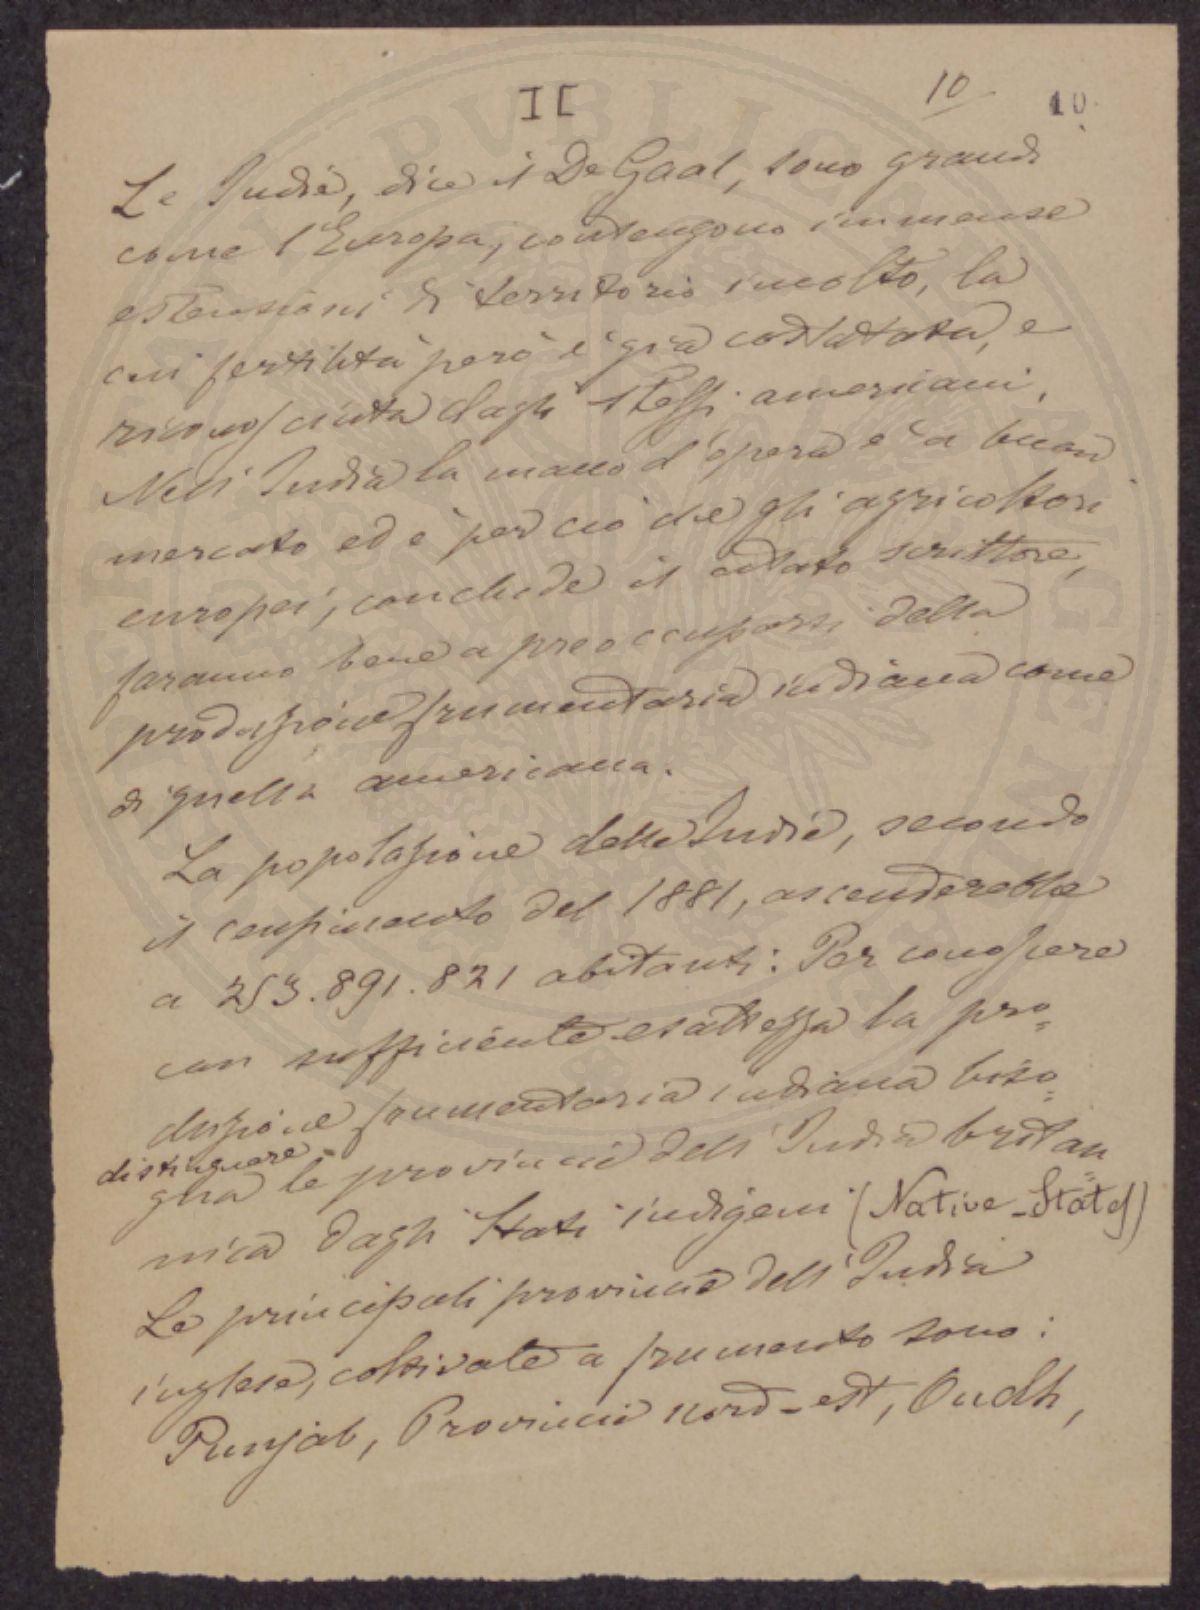 I [
10
10
Le Indie, dice il De Gaal, sono grandi
come l'Europa, contengono immense
estensioni di territorio incolto, la
cui fertilità però è già costatata, e
riconosciuta dagli stessi americani.
Nell' India la mano d'opera è a buon
mercato ed è per ciò che gli agricoltori
europei, conchude il citato scrittore,
faranno bene a preoccuparsi della
produzione frumentaria indiana come
di quella americana.
La popolazione delle Indie, secondo
il censimento del 1881, ascenderebbe
a 253.891.821 abitanti: Per conoscere
con sufficiente esattezza la pro=
duzione frumentaria indiana biso=
distinguere
gna le provincie dell' India britan=
nica dagli Stati indigeni (Native-States)
Le principali provincie dell' India
inglese, coltivate a frumento sono:
Punjab, Provincie nord-est, Oudh,